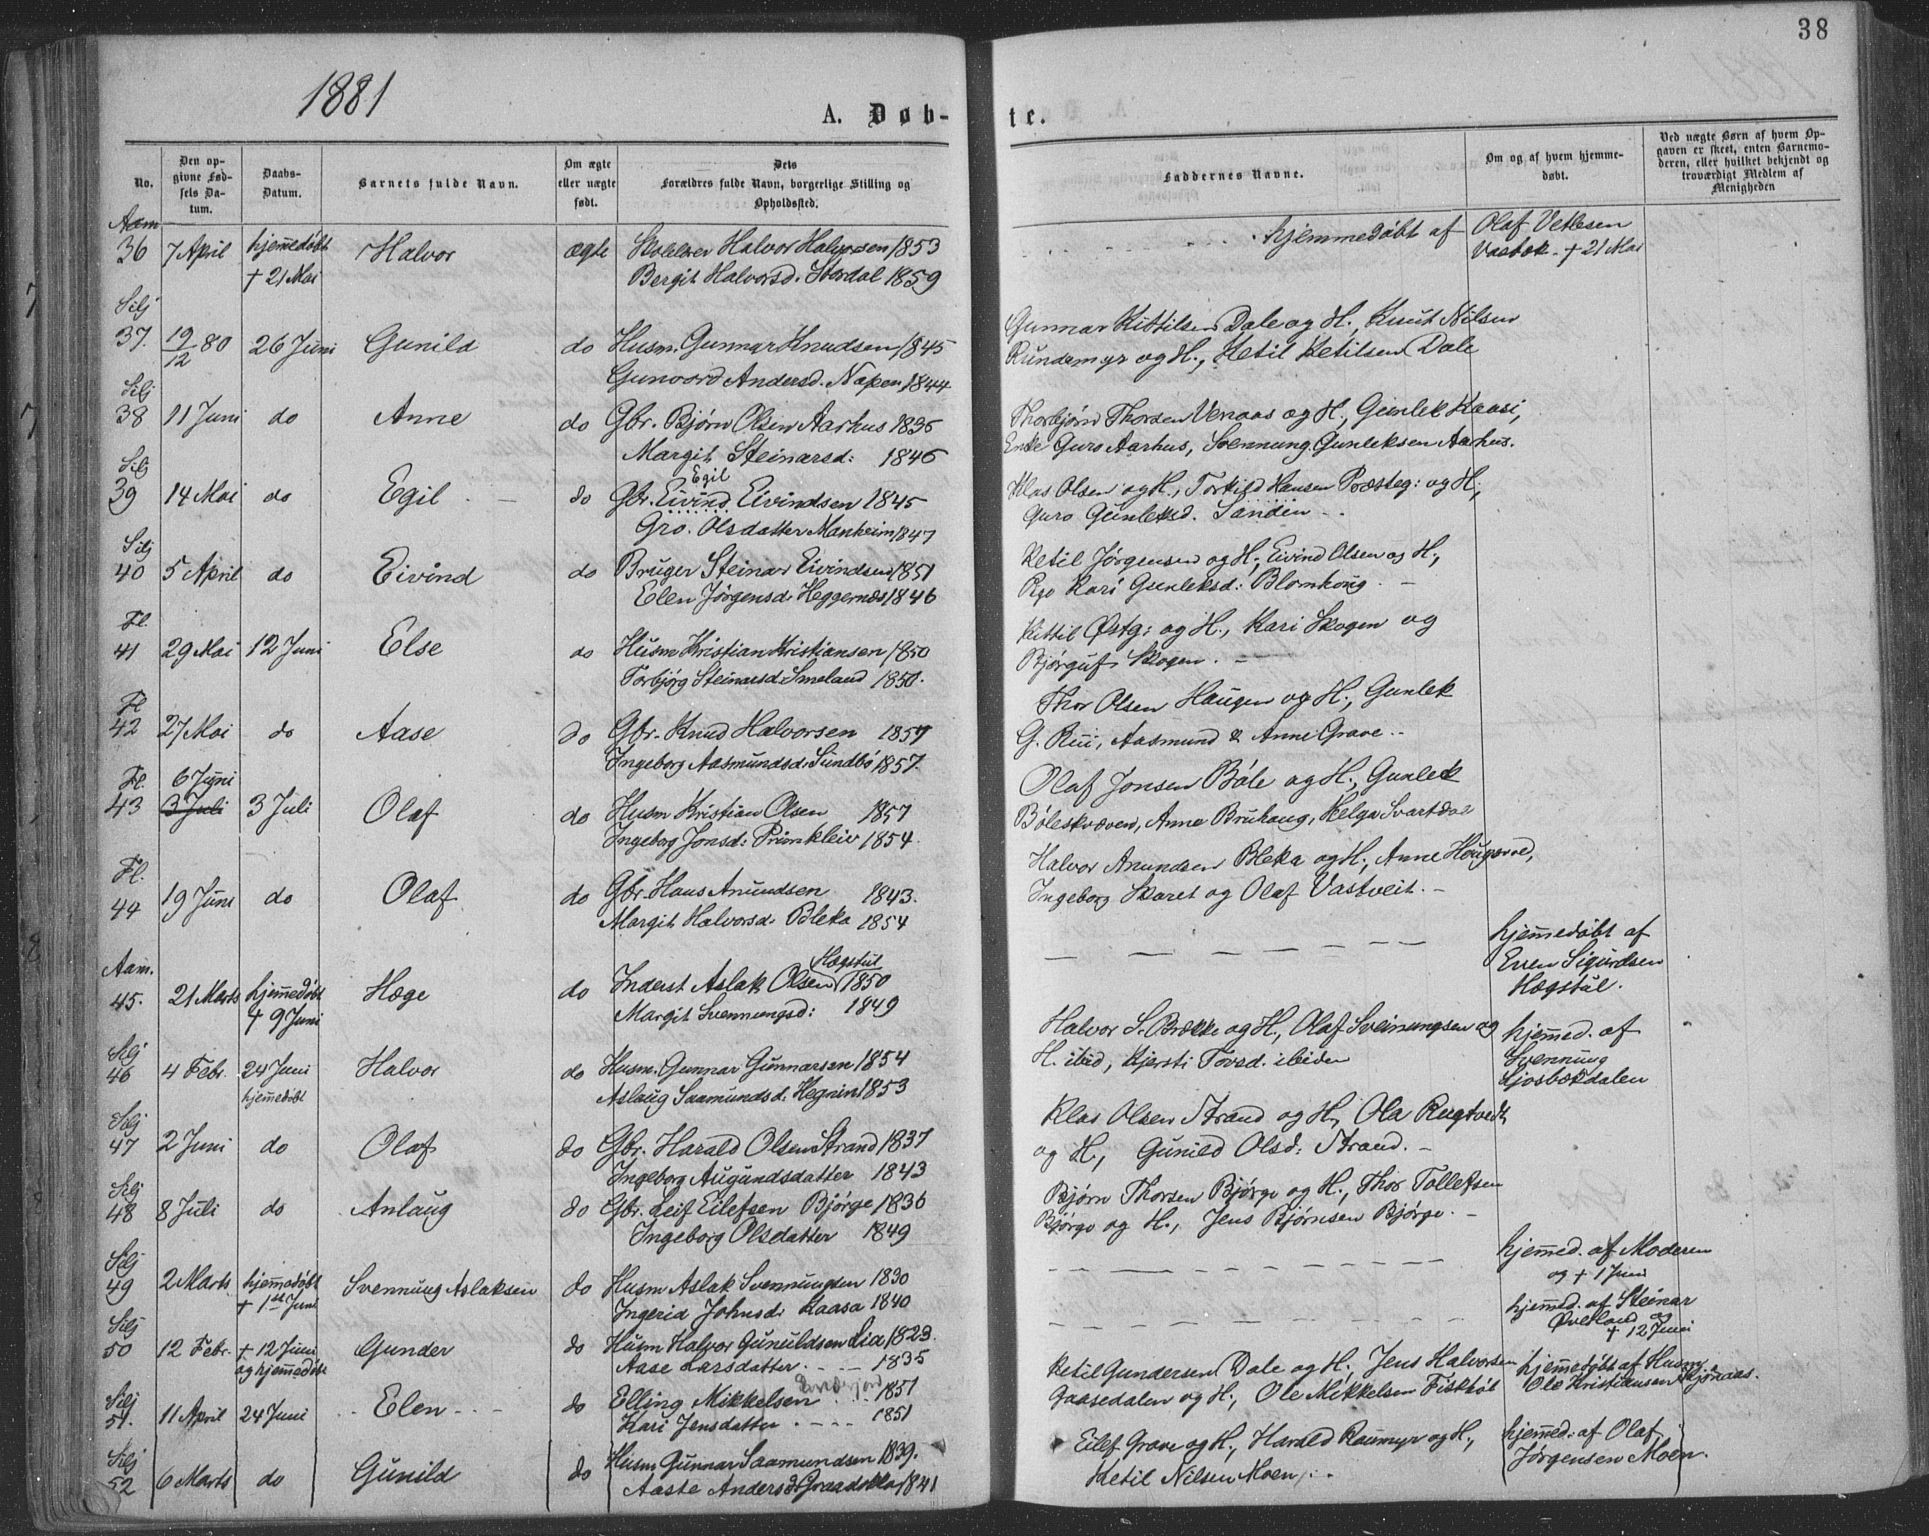 38
1881
A. Døb-
te.
No.
Den op-
givne Fød-
sels Da-
tum.
Daabs-
Datum.
Barnets fulde Navn.
Om ægte
eller uægte
født.
Dets
Forældres fulde Navn, borgerlige Stilling og
Opholdssted.
Faddernes Navne.
Om og af hvem hjemme-
døbt.
Ved uægte Børn af hvem Op-
gaven er skeet, enten Barnemo-
deren, eller hvilket bekjendt og
troværdigt Medlem af
Menigheden
Aam
36 7 April hjemmedøbt Halvor ægte Halvor Halvorsen 1853
† 21 Mai Bergit Halvorsd. 1859
hjemmedøbt af Olaf Vetlesen
† 21 Mai
Silj
37. 19/12 80 26 Juni Gunild do Husm. Gunnar Knudsen 1845
Andersd. Næpen 1844
Gunnar Kittilsen Dale og H., Knut Nilsen
Rundemyr og H., Ketil Ketilsen Dale
Silj
38 11 Juni do Anne do Gbr. Bjørn Olsen Aarhus 1835
Margit Steinarsd: 1846
Thorbjørn Thorsen Venaas og H., Gunlek Kaasi,
Enke Guro Aarhus, Svennung Gunleksen Aarhus.
Silj
39 14 Mai do Egil do Gbr. Eivind Egil Eivindsen 1845
Gro. Olsdatter Manheim 1847
Klas Olsen og H., Torkild Hansen Præsteg: og H.,
Guro Gunleksd. Sanden
Silj
40 5 April do Eivind do Bruger Steinar Eivindsen 1851
Elen Jørgensd. Heggernæs 1846
Ketil Jørgensen og H., Eivind Olsen og H.,
Pge Kari Gunleksd: Blomhoug.
Fl.
41 29 Mai 12 Juni Else do Husm Kristian Kristiansen 1850
Torbjørg Steinarsd. Smeland 1850.
Kittil Østg: og H., Kari Skogen og
Bjørguf Skogen.
Fl
42 27 Mai do Aase do Gbr. Knud Halvorsen 1857
Ingeborg Aasmundsd. Sundbø 1857.
Thor Olsen Haugen og H., Gunlek
G. Rui, Aasmund & Anne Grave
Fl. 6 Juni
43 3 Juli 3 Juli Olaf do Husm Kristian Olsen 1857
Ingeborg Jonsd: Primkleiv 1854.
Olaf Jonsen Bøle og H., Gunlek
Bøleskvæven, Anne Bruhaug, Helga Svartdal
Fl.
44 19 Juni do Olaf do Gbr. Hans Anundsen 1843.
Margit Halvorsd. Bleka 1854
Halvor Anundsen Bleka og H., Anne
Ingeborg Skaret og Olaf Vastveit.
Aam.
45. 21 Marts hjemmedøbt Hæge do Inderst Aslak Olsen Hægstul 1850
† 9 Juni Margit Svennungsd: 1849
hjemmedøbt af
Even Sigurdsen
Hægstul.
Silj
46 4 Febr. 24 Juni Halvor do Husm. Gunnar Gunnarsen 1854
hjemmedøbt Aslaug Saamundsd. Hegnin 1853
Halvor S. Brække og H., Olaf Sveinungsen og
H. ibid, Kjersti Tovsd. ibiden
hjemmed. af
Svennung
Ljosbækdalen
Silj
47 2 Juni do Olaf do Gbr. Harald Olsen Strand 1837
Ingeborg Augundsdatter 1843
Klas Olsen Strand og H., Ola Rugtvedt
og H., Gunild Olsd: Strand.
Silj
48 8 Juli do Anlaug do Gbr. Leif Eilefsen Bjørge 1836
Ingeborg Olsdatter 1849
Bjørn Thorsen Bjørge og H., Thor Tollefsen
Bjørge og H., Jens Bjørnsen Bjørge.
Silj
49 2 Marts hjemmedøbt Svennung Aslaksen do Husm Aslak Svennungsen 1830
† 1ste Juni Ingerid Johnsd. Kaasa 1840
hjemmed. af Moderen
og † 1 Juni
Silj
50 12 Febr. † 12 Juni Gunder do Husm Halvor Gunuldsen Lia 1823.
og hjemmedøbt Aase Larsdatter 1835
hjemmed. af Steinar
Øverland og
† 12 Juni
Silj
51. 11 April 24 Juni Elen do Elling Mikkelsen 1851
Kari Jensdatter 1851
Ketil Gundersen Dale og H., Jens Halvorsen
Gaasedalen og H., Ole Mikkelsen Fisktøl
hjemmedøbt af Husm
Ole Kristiansen Kjønaas.
Silj
52 6 Marts do Gunild do Husm Gunnar Saamundsen 1839.
Aaste Andersd. 1841
Eilef Grave og H., Harald Raumyr og H.,
Ketil Nilsen Moen
hjemmed. af Olaf
Jørgensen Moen.